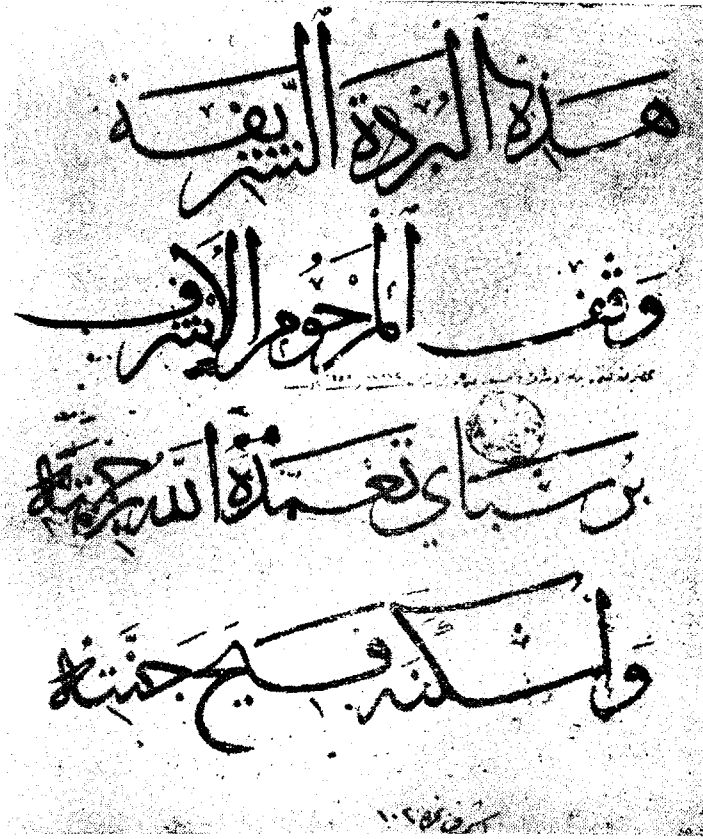 هَذِهِ الْبُرْدَةُ الشَّرِيفَةُ
وَقْفُ الْمَرْحُومِ الْأَشْرَفِ
بَرْسْبَاي تَغَمَّدَهُ اللهُ بِرَحْمَتِهِ
وَأَسْكَنَهُ فَسِيحَ جَنَّتِهِ